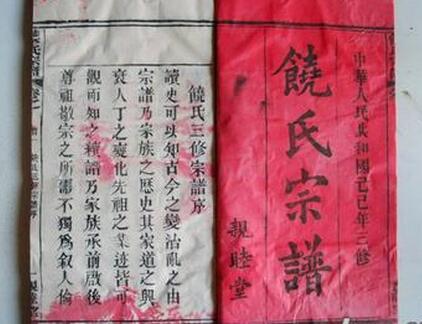 中華人民共和國己巳年三修
饒氏宗譜
親睦堂
饶氏三修宗譜序
讀史可以知古今之變治乱之由
宗譜乃家族之歷史其家道之興
衰人丁之变化先祖之業迹皆可
觀而知之續譜乃家族承前啟後
尊祖敬宗之所需不獨為叙人倫